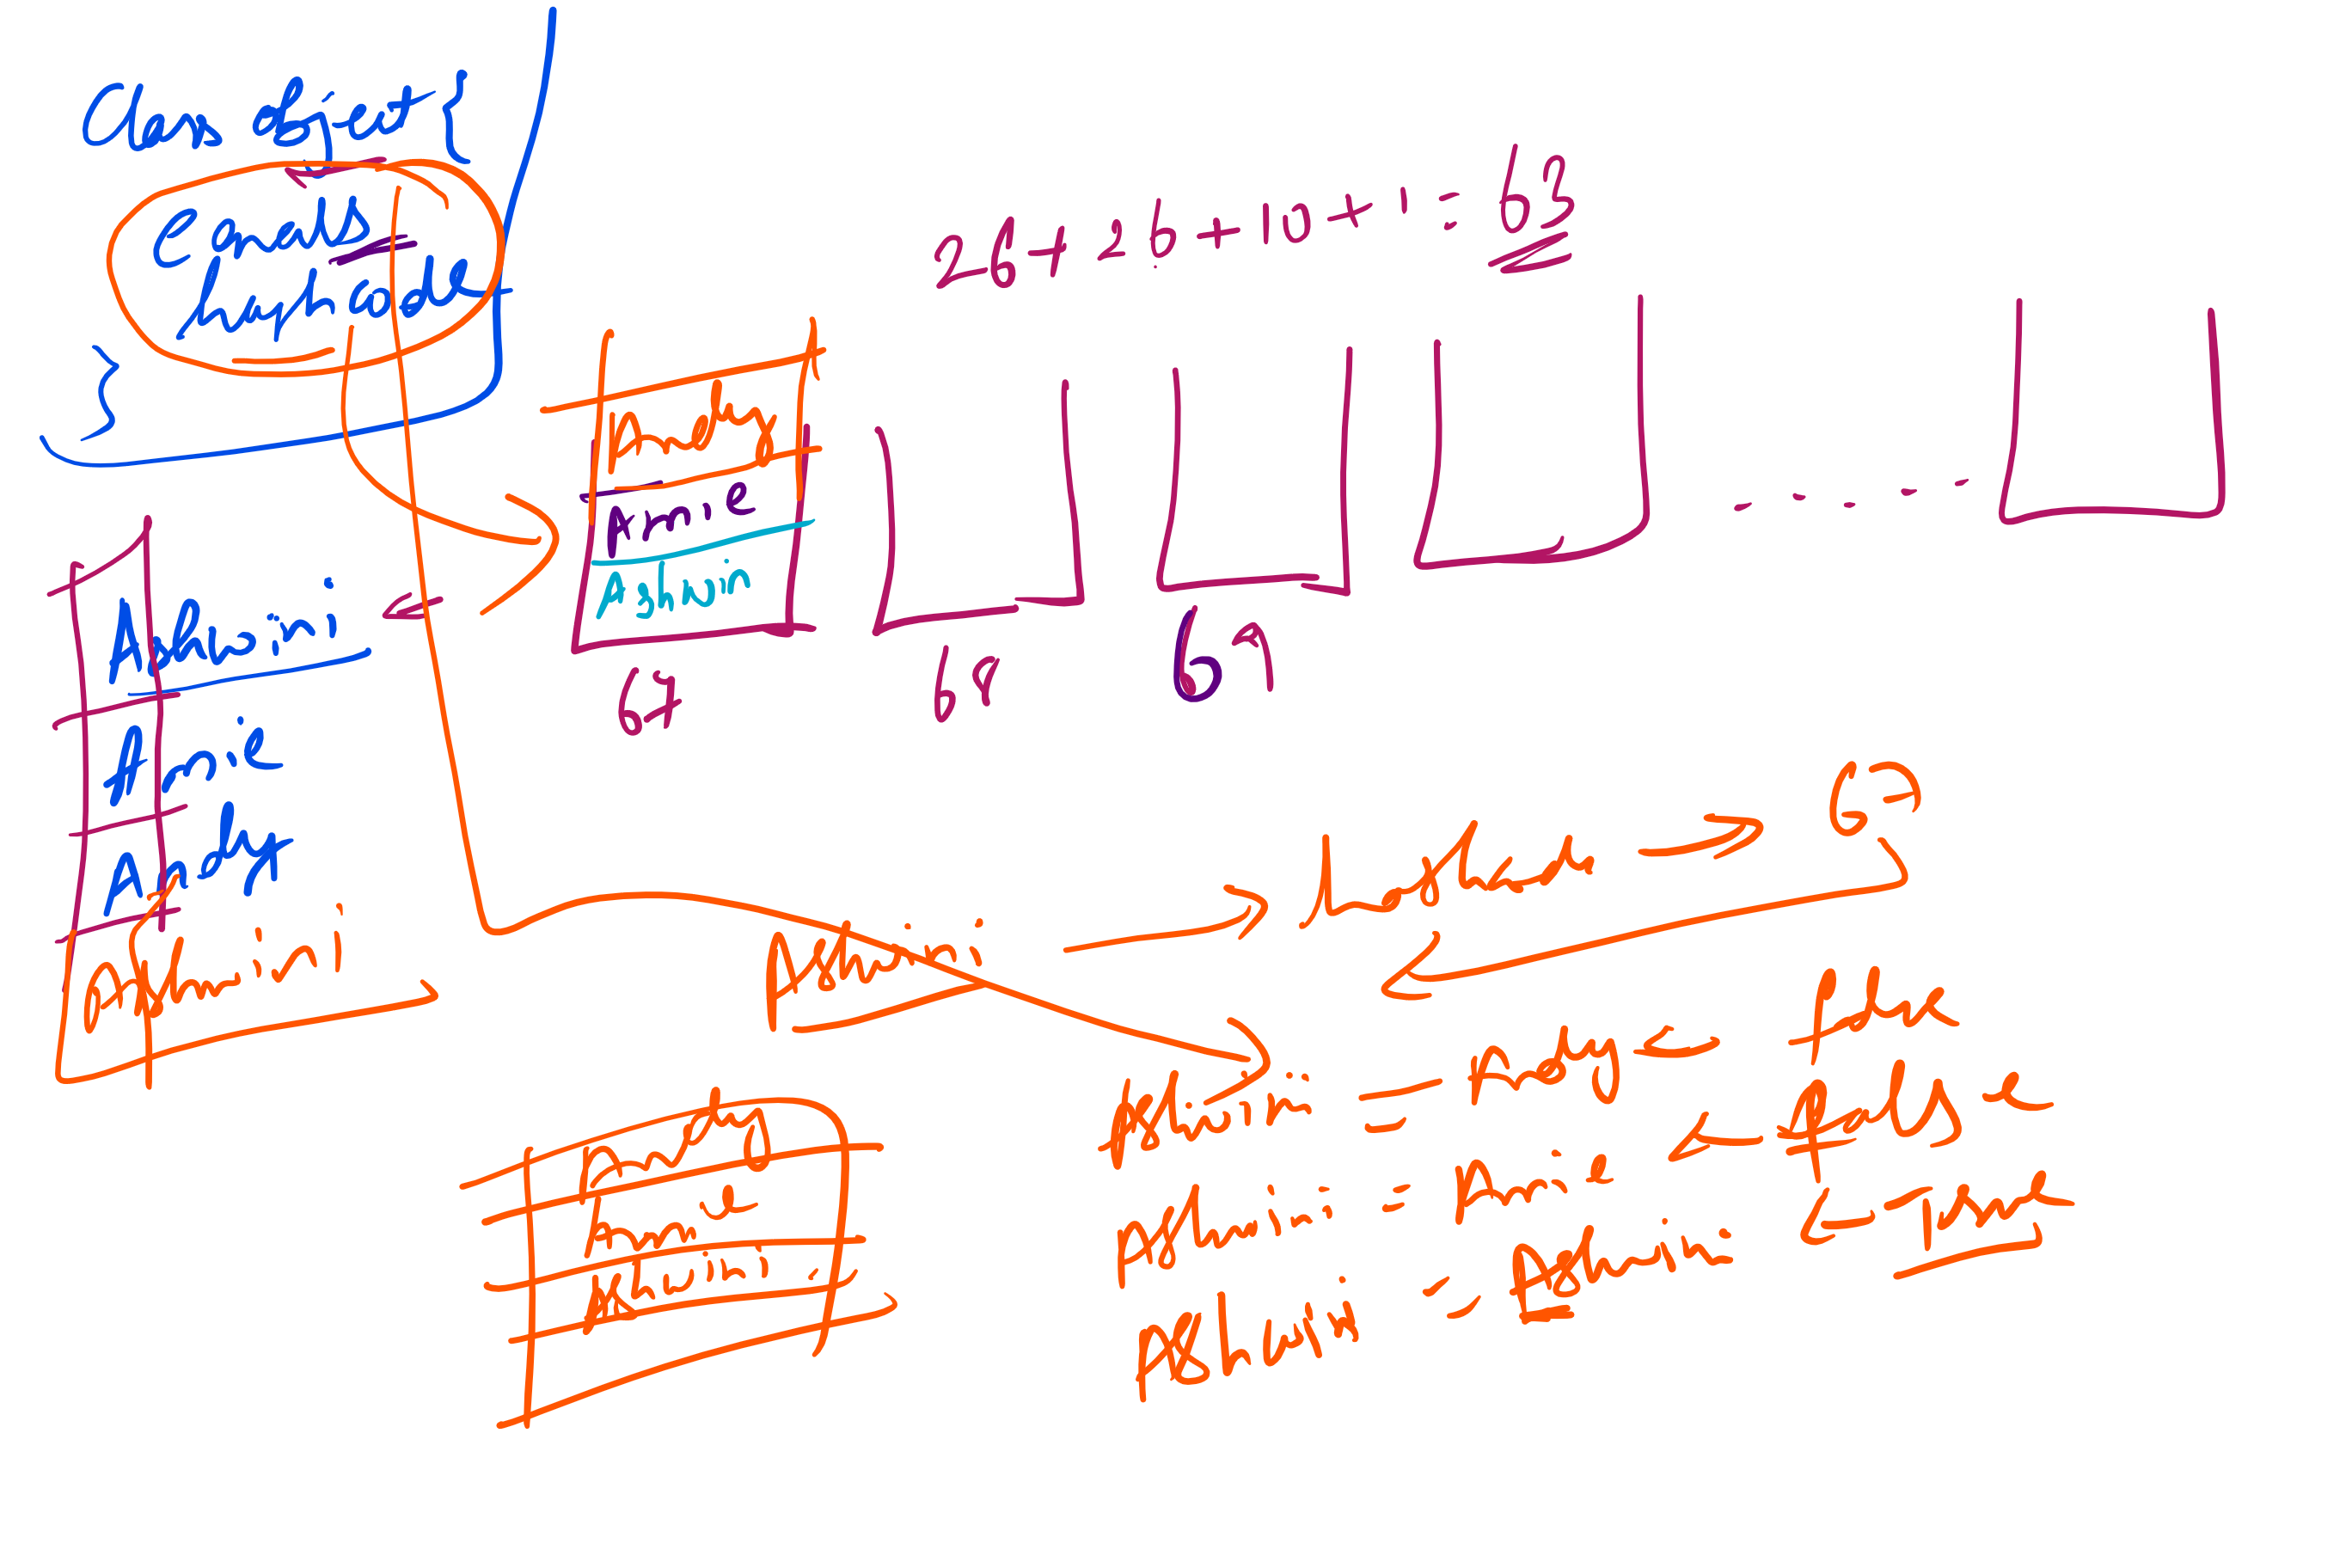 Class object {
Equals
hashcode
}
26 + 26 + 10 + 1 = 63
Andy
Annie
Ashwin
67
68
69
Ashwini
Annie
Andy
Ashwini
Ashwini → hashcode → 67
Ashwini = Andy ← false
Ashwini = Annie ← false
Ashwini = Ashwini ← true
Andy
Annie
Ashwini